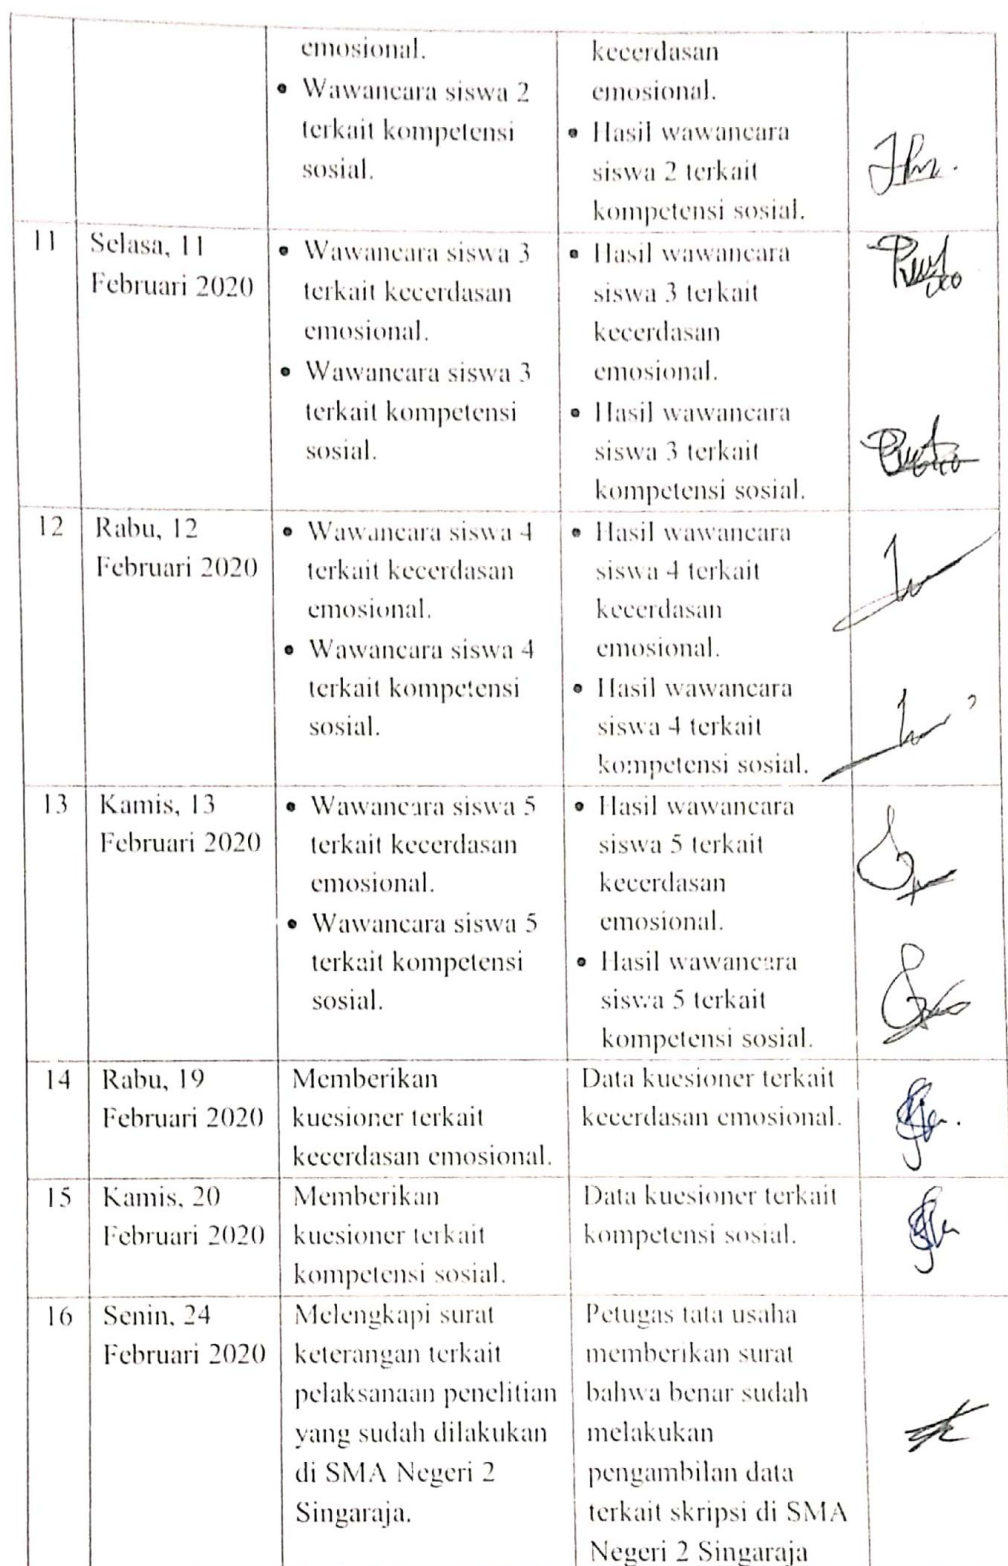 emosional.
• Wawancara siswa 2
terkait kompetensi
sosial.
kecerdasan
emosional.
• Hasil wawancara
siswa 2 terkait
kompetensi sosial.
11
Selasa, 11
Februari 2020
• Wawancara siswa 3
terkait kecerdasan
emosional.
• Wawancara siswa 3
terkait kompetensi
sosial.
• Hasil wawancara
siswa 3 terkait
kecerdasan
emosional.
• Hasil wawancara
siswa 3 terkait
kompetensi sosial.
12
Rabu, 12
Februari 2020
• Wawancara siswa 4
terkait kecerdasan
emosional.
• Wawancara siswa 4
terkait kompetensi
sosial.
• Hasil wawancara
siswa 4 terkait
kecerdasan
emosional.
• Hasil wawancara
siswa 4 terkait
kompetensi sosial.
13
Kamis, 13
Februari 2020
• Wawancara siswa 5
terkait kecerdasan
emosional.
• Wawancara siswa 5
terkait kompetensi
sosial.
• Hasil wawancara
siswa 5 terkait
kecerdasan
emosional.
• Hasil wawancara
siswa 5 terkait
kompetensi sosial.
14
Rabu, 19
Februari 2020
Memberikan
kuesioner terkait
kecerdasan emosional.
Data kuesioner terkait
kecerdasan emosional.
15
Kamis, 20
Februari 2020
Memberikan
kuesioner terkait
kompetensi sosial.
Data kuesioner terkait
kompetensi sosial.
16
Senin, 24
Februari 2020
Melengkapi surat
keterangan terkait
pelaksanaan penelitian
yang sudah dilakukan
di SMA Negeri 2
Singaraja.
Petugas tata usaha
memberikan surat
bahwa benar sudah
melakukan
pengambilan data
terkait skripsi di SMA
Negeri 2 Singaraja